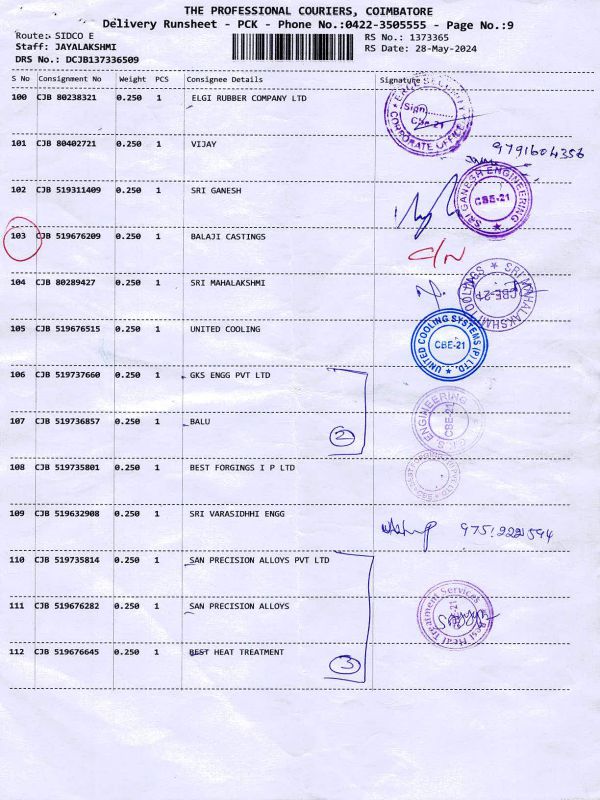 THE PROFESSIONAL COURIERS, COIMBATORE
Delivery Runsheet - PCK - Phone No.:0422-3505555 - Page No.:9
Route: SIDCO E
RS No.: 1373365
Staff: JAYALAKSHMI
RS Date: 28-May-2024
DRS No.: DCJB137336509
S No Consignment No Weight PCS Consignee Details Signature
100 CJB 80238321 0.250 1 ELGI RUBBER COMPANY LTD
SECURITY Sign CBE-21 CORPORATE OFFICE
101 CJB 80402721 0.250 1 VIJAY
9791604356
102 CJB 519311409 0.250 1 SRI GANESH
SRI GANESH ENGINEERING CBE-21
103 CJB 519676209 0.250 1 BALAJI CASTINGS
C/N
104 CJB 80289427 0.250 1 SRI MAHALAKSHMI
SRI MAHALAKSHMI TOOLINGS CBE-21
105 CJB 519676515 0.250 1 UNITED COOLING
UNITED COOLING SYSTEMS (P) LTD. CBE-21
106 CJB 519737660 0.250 1 GKS ENGG PVT LTD
107 CJB 519736857 0.250 1 BALU
2
ENGINEERING CBE-21
108 CJB 519735801 0.250 1 BEST FORGINGS I P LTD
109 CJB 519632908 0.250 1 SRI VARASIDHHI ENGG
9751222594
110 CJB 519735814 0.250 1 SAN PRECISION ALLOYS PVT LTD
111 CJB 519676282 0.250 1 SAN PRECISION ALLOYS
Best Heat Treatment Services
112 CJB 519676645 0.250 1 BEST HEAT TREATMENT
3